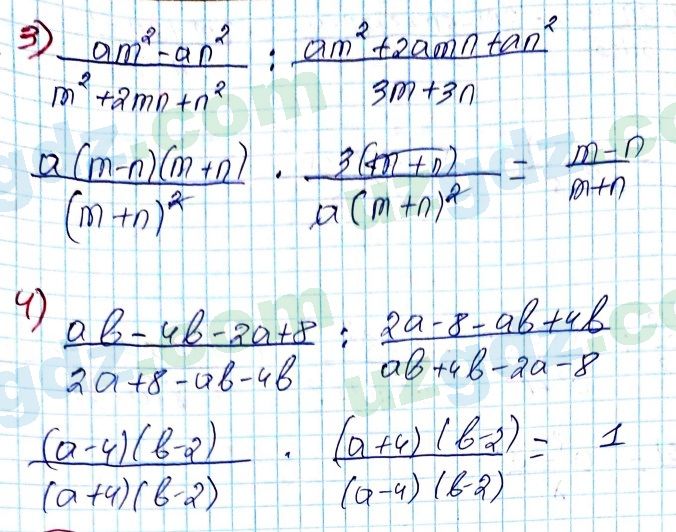 3) (am² - an²)/(m² + 2mn + n²) : (am² + 2amn + an²)/(3m + 3n)
(a(m-n)(m+n))/((m+n)²) · (3(m+n))/(a(m+n)²) = (m-n)/(m+n)
4) (ab - 4b - 2a + 8)/(2a + 8 - ab - 4b) : (2a - 8 - ab + 4b)/(ab + 4b - 2a - 8)
((a-4)(b-2))/((a+4)(b-2)) · ((a+4)(b-2))/((a-4)(b-2)) = 1